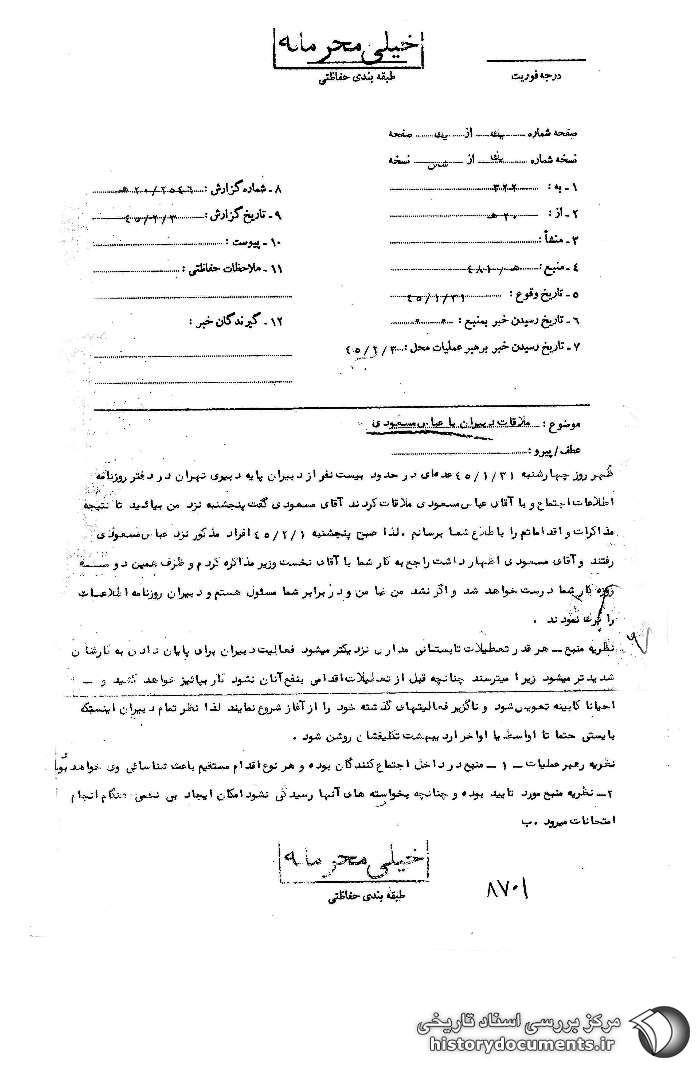 خیلی محرمانه
طبقه بندی حفاظتی
درجه فوریت
صفحه شماره یک از یک صفحه
نسخه شماره یک از شش نسخه
۱ـ به : ۳۲۲
۲ـ از : ۲۰ ھ
۳ـ منشأ :
۴ـ منبع : ۴۸۱۰
۵ـ تاریخ وقوع : ۴۵/۱/۳۱
۶ـ تاریخ رسیدن خبر بمنبع :
۷ـ تاریخ رسیدن خبر برهبر عملیات محل : ۴۵/۲/۳
۸ـ شماره گزارش : ۲۰/۲۵۴۶ ھ
۹ـ تاریخ گزارش : ۴۵/۲/۳
۱۰ـ پیوست :
۱۱ـ ملاحظات حفاظتی :
۱۲ـ گیرندگان خبر :
موضوع : ملاقات دبیران با عباس مسعودی
عطف/پیرو :
ظهر روز چهارشنبه ۴۵/۱/۳۱ عده‌ای در حدود بیست نفر از دبیران پایه دبیری تهران در دفتر روزنامه
اطلاعات اجتماع و با آقای عباس مسعودی ملاقات کردند آقای مسعودی گفت پنجشنبه نزد من بیائید تا نتیجه
مذاکرات و اقداماتم را باطلاع شما برسانم . لذا صبح پنجشنبه ۴۵/۲/۱ افراد مذکور نزد عباس مسعودی
رفتند و آقای مسعودی اظهار داشت راجع به کار شما با آقای نخست وزیر مذاکره کردم و ظرف همین دو سه
روزه کار شما درست خواهد شد و اگر نشد من ضامن و در برابر شما مسئول هستم و دبیران روزنامه اطلاعات
را ترک نمودند .
نظریه منبع ـ هر قدر تعطیلات تابستانی مدارس نزدیکتر میشود فعالیت دبیران برای پایان دادن به کارشان
شدیدتر میشود زیرا میترسند چنانچه قبل از تعطیلات اقدامی بنفع آنان نشود کار بپائیز خواهد کشید و ـ
احیانا کابینه تعویض شود و ناگزیر فعالیتهای گذشته خود را از آغاز شروع نمایند لذا نظر تمام دبیران اینستکه
بایستی حتما تا اواسط یا اواخر اردیبهشت تکلیفشان روشن شود .
نظریه رهبر عملیات ـ ۱ ـ منبع در داخل اجتماع کنندگان بوده و هر نوع اقدام مستقیم باعث شناسائی وی خواهد بود
۲ـ نظریه منبع مورد تایید بوده و چنانچه بخواسته های آنها رسیدگی نشود امکان ایجاد بی نظمی هنگام انجام
امتحانات میرود . ب
خیلی محرمانه
طبقه بندی حفاظتی
۸۷۰۱
مرکز بررسی اسناد تاریخی
historydocuments.ir